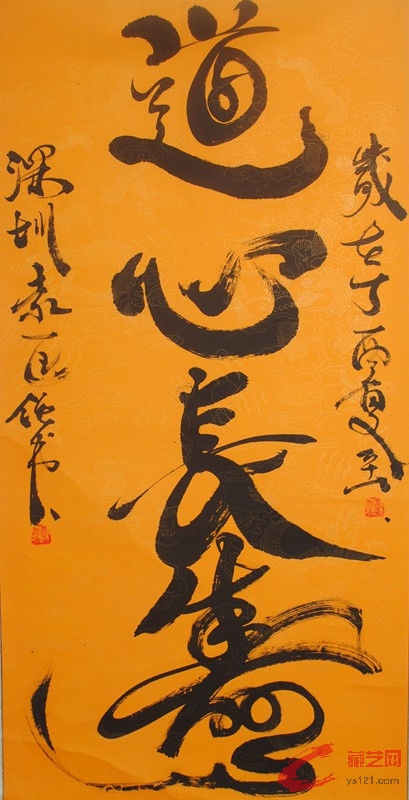 歲在丁酉夏至
道心長壽
深圳袁
藏艺网
ys121.com